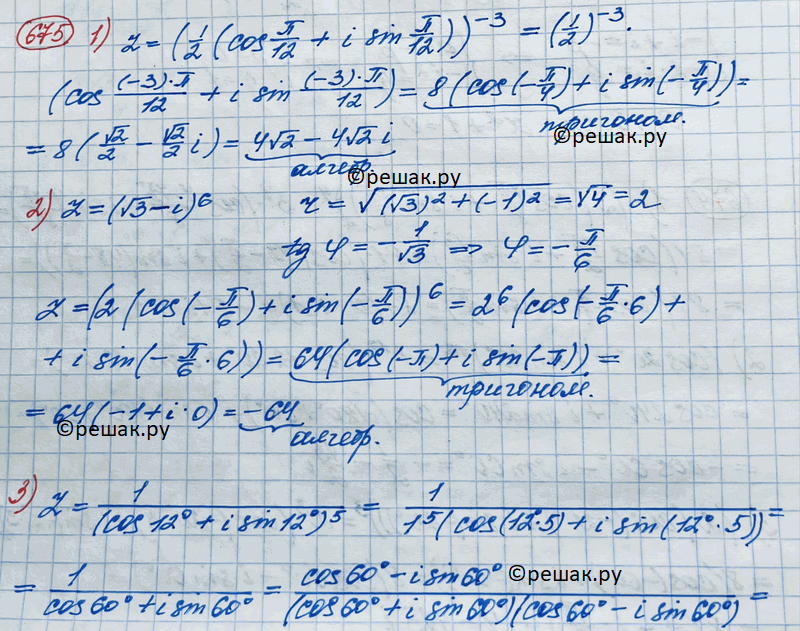 675 1) z = (1/2 (cos π/12 + i sin π/12))^-3 = (1/2)^-3 ·
(cos (-3)·π/12 + i sin (-3)·π/12) = 8 (cos(-π/4) + i sin(-π/4)) =
тригоном.
©решак.ру
= 8 (√2/2 - √2/2 i) = 4√2 - 4√2 i
алгебр.
©решак.ру
2) z = (√3 - i)^6 r = √((√3)² + (-1)²) = √4 = 2
tg φ = - 1/√3 => φ = - π/6
z = (2 (cos(-π/6) + i sin(-π/6))^6 = 2^6 (cos(-π/6 · 6) +
+ i sin(- π/6 · 6)) = 64 (cos(-π) + i sin(-π)) =
тригоном.
= 64 (-1 + i · 0) = -64
©решак.ру
алгебр.
3) z = 1/(cos 12° + i sin 12°)^5 = 1/(1^5 (cos(12°·5) + i sin(12°·5))) =
= 1/(cos 60° + i sin 60°) = (cos 60° - i sin 60°)/((cos 60° + i sin 60°)(cos 60° - i sin 60°)) =
©решак.ру